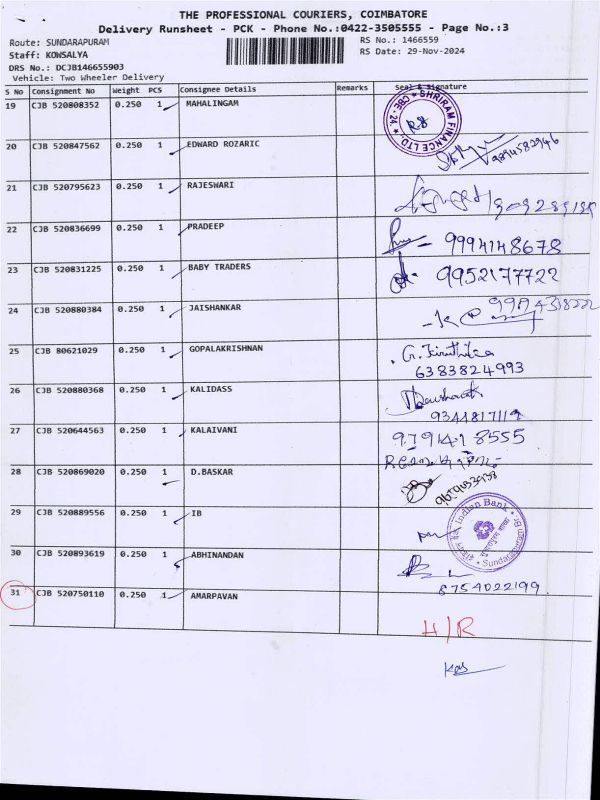 THE PROFESSIONAL COURIERS, COIMBATORE
Delivery Runsheet - PCK - Phone No.:0422-3505555 - Page No.:3
Route: SUNDARAPURAM RS No.: 1466559
Staff: KOWSALYA RS Date: 29-Nov-2024
DRS No.: DCJB146655903
Vehicle: Two Wheeler Delivery
S No Consignment No Weight PCS Consignee Details Remarks Seal & Signature
19 CJB 520808352 0.250 1 MAHALINGAM
SHRIRAM FINANCE LTD. * CBE - 24. *
20 CJB 520847562 0.250 1 EDWARD ROZARIC 9894582946
21 CJB 520795623 0.250 1 RAJESWARI
22 CJB 520836699 0.250 1 PRADEEP 9994148678
23 CJB 520831225 0.250 1 BABY TRADERS 9952177722
24 CJB 520880384 0.250 1 JAISHANKAR
25 CJB 80621029 0.250 1 GOPALAKRISHNAN 6383824993
26 CJB 520880368 0.250 1 KALIDASS 9344817119
27 CJB 520644563 0.250 1 KALAIVANI 9791418555
28 CJB 520869020 0.250 1 D.BASKAR
29 CJB 520889556 0.250 1 IB
Indian Bank Sundarapuram Br.
30 CJB 520893619 0.250 1 ABHINANDAN 8754022199
31 CJB 520750110 0.250 1 AMARPAVAN
H/R